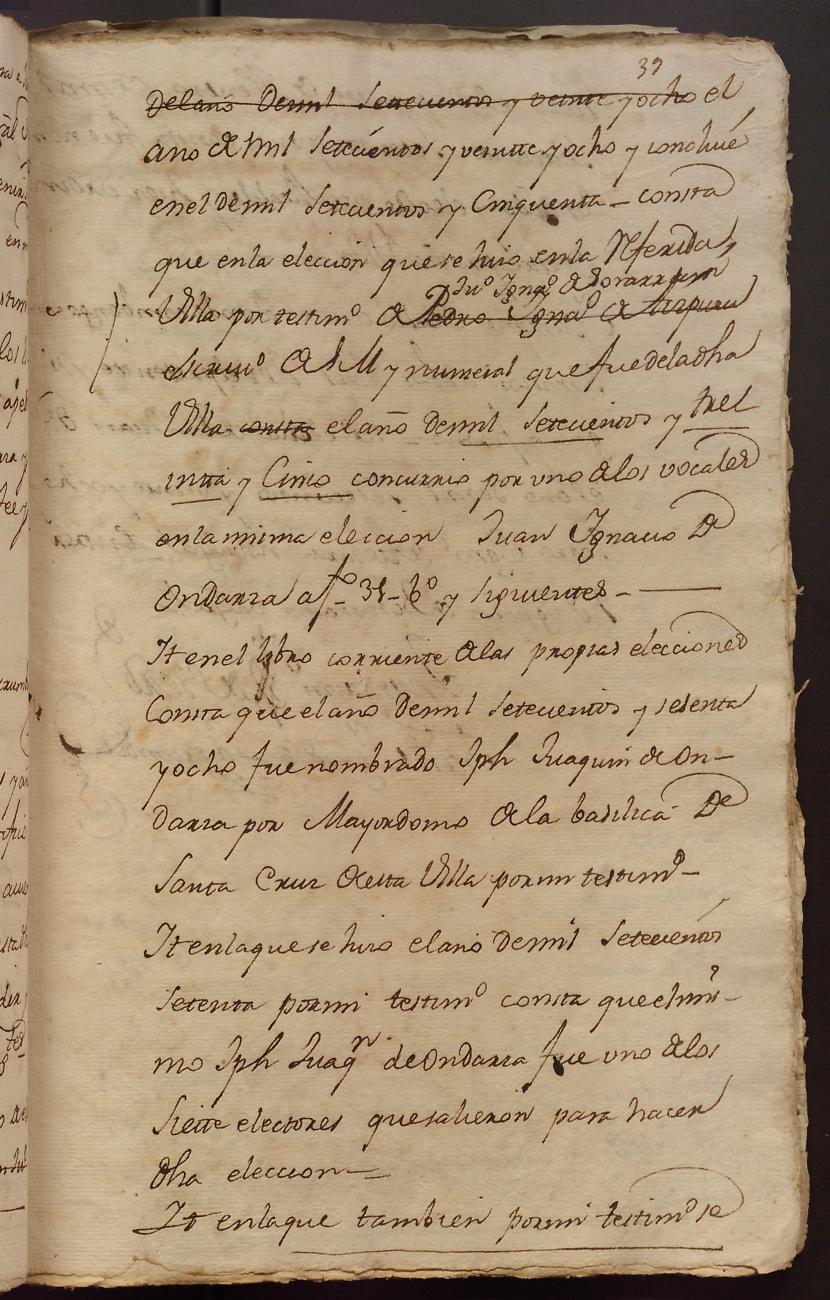 39
del año de mil setecientos y veinte y ocho el
año de mil setecientos y veinte y ocho y concluie
en el de mil setecientos y Cinquenta - consta
que en la eleccion que se hizo en la Referida
Ju.º Ignº de
Villa por testimº de Pedro Ignaº de
escriuº de S M y numeral que fue de la dha
Villa consta el año de mil setecientos y trei
inta y Cinco concurrio por vno de los vocales
en la misma eleccion Juan Ignacio De
Ondarza a fº 31 bº y siguientes -
It en el libro corriente de las propias elecciones
Consta que el año de mil setecientos y sesenta
y ocho fue nombrado Jph Juaquin de On-
darza por Mayordomo de la basilica De
Santa Cruz de esta Villa por mi testimº -
It en la que se hizo el año de mil setecientos
setenta por mi testimº consta que el mis-
mo Jph Juaqn de Ondarza fue vno de los
siette electores que salieron para hacer
dha eleccion -
It en la que tambien por mi testimº se